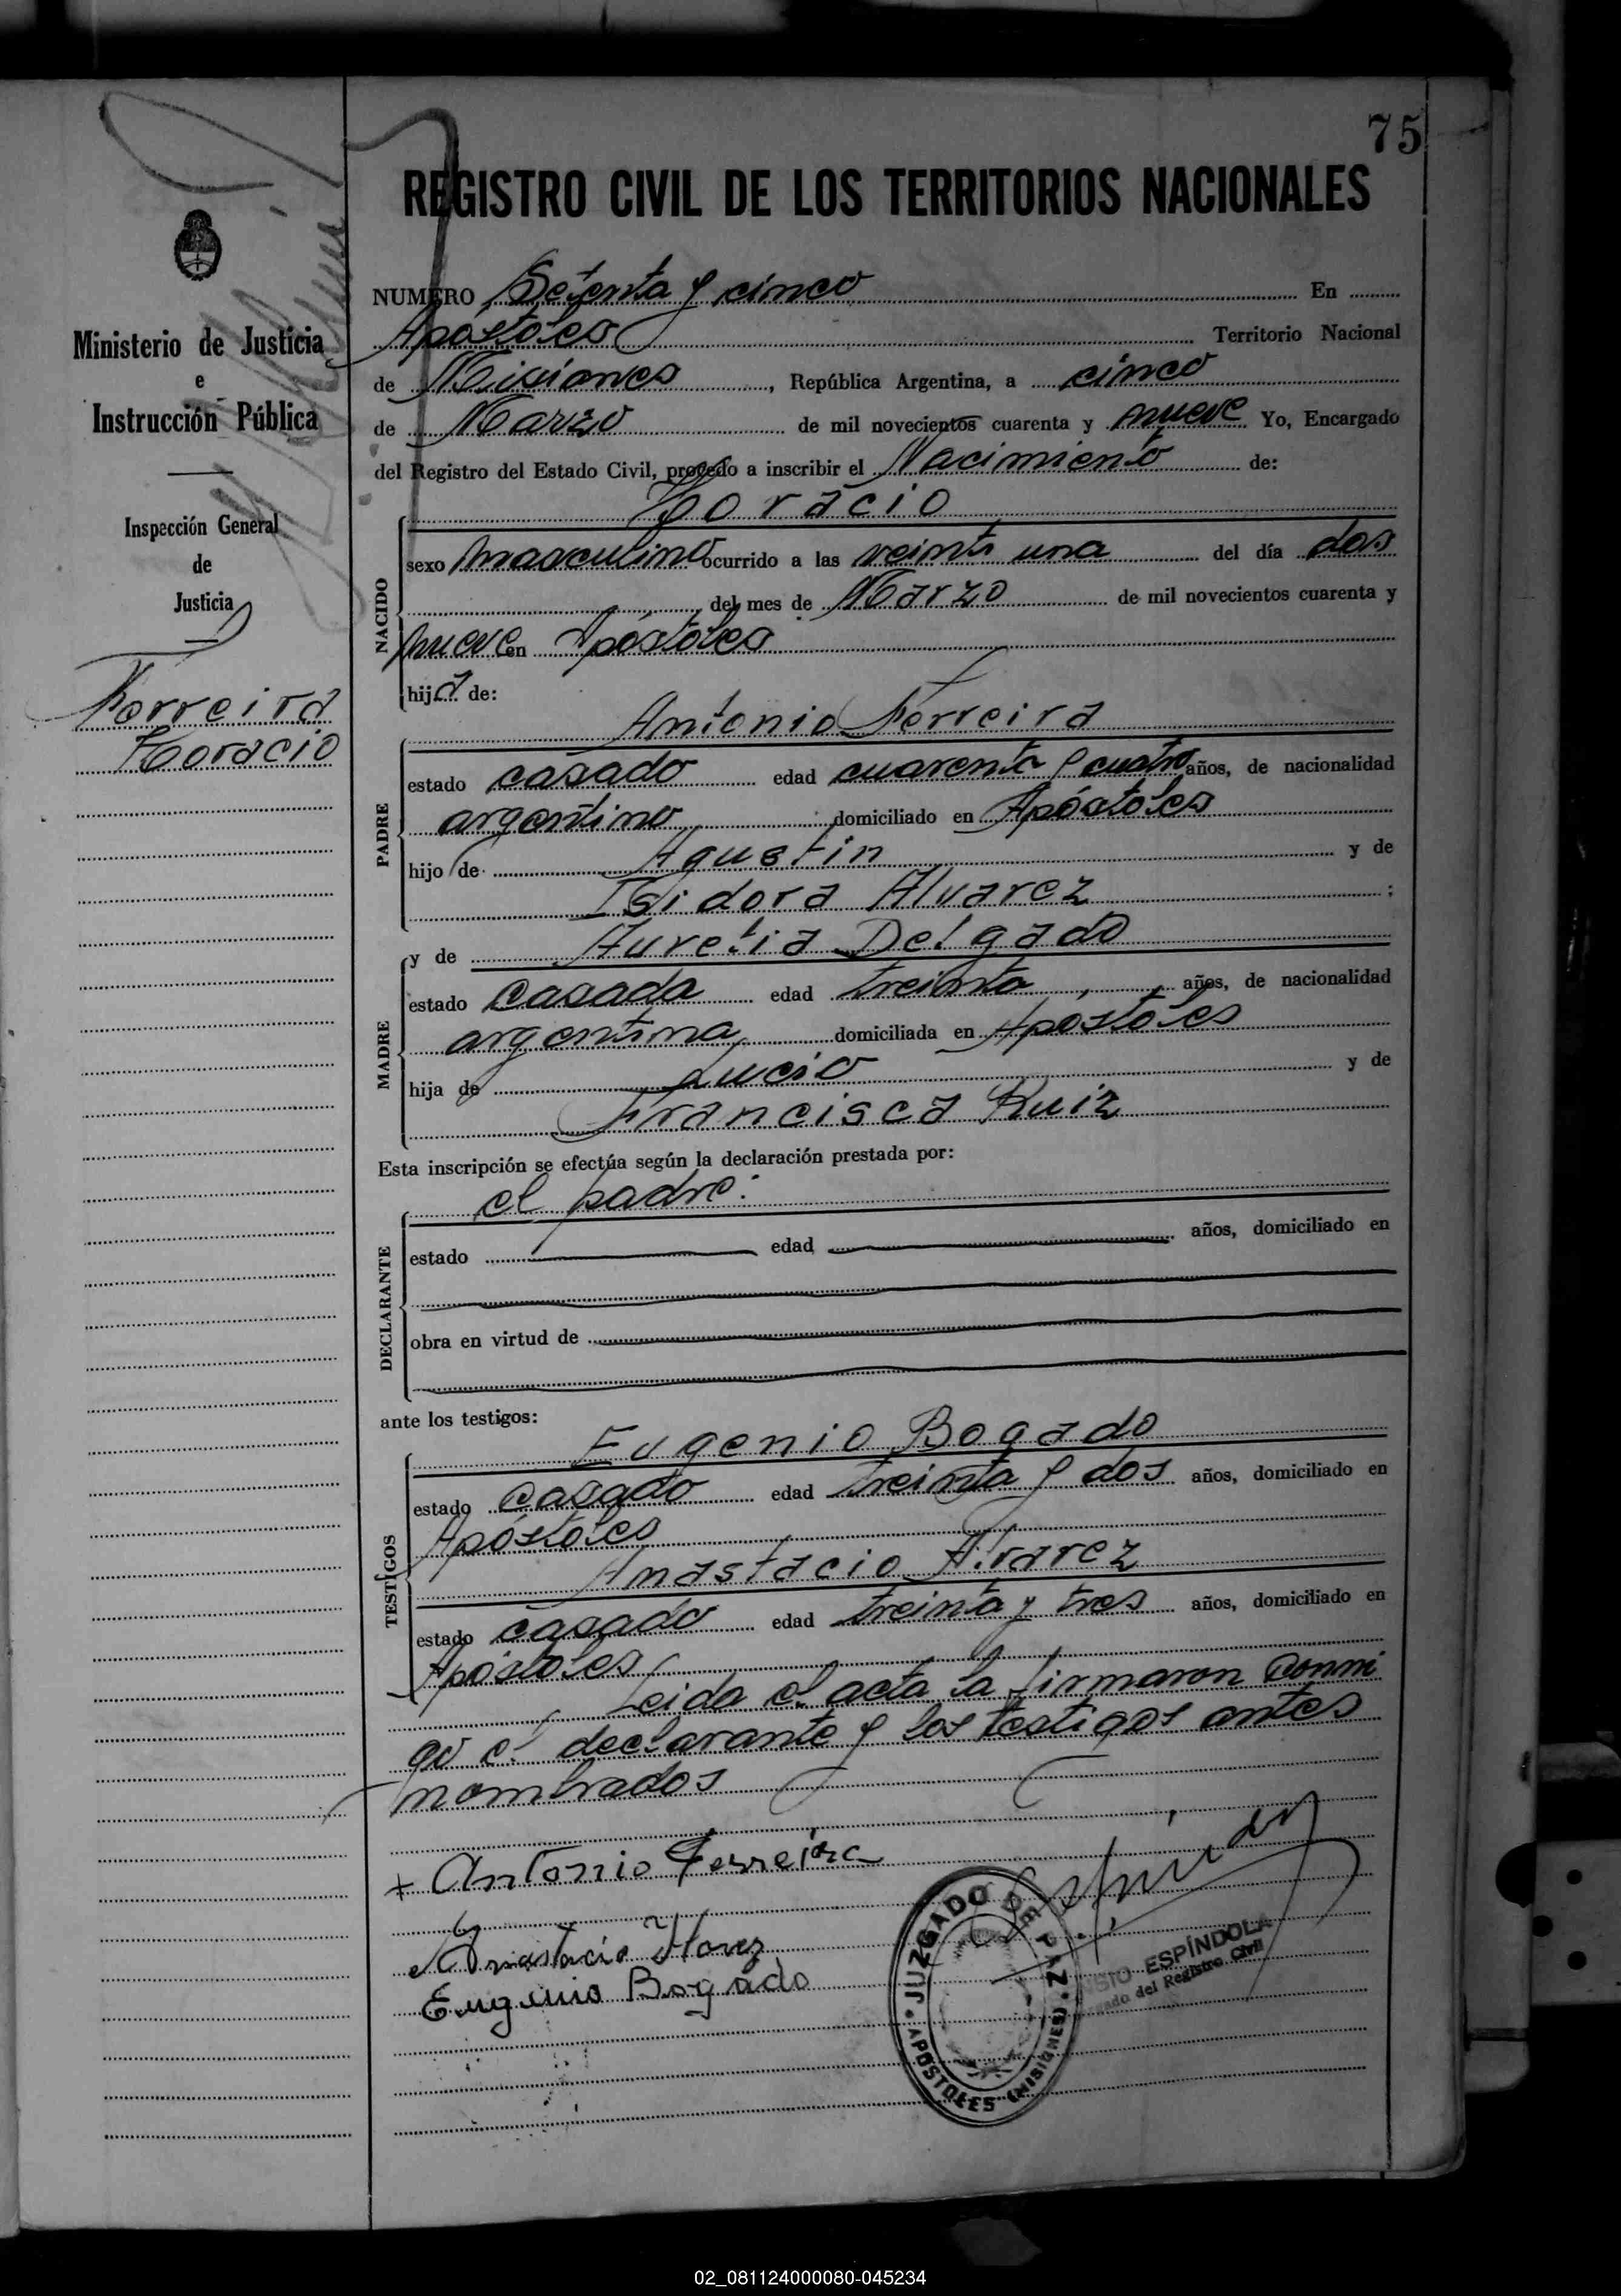 75
REGISTRO CIVIL DE LOS TERRITORIOS NACIONALES
NUMERO Setenta y cinco En
Apóstoles Territorio Nacional
de Misiones, República Argentina, a cinco
de Marzo de mil novecientos cuarenta y nueve Yo, Encargado
del Registro del Estado Civil, procedo a inscribir el Nacimiento de:
Horacio
NACIDO
sexo masculino ocurrido a las veinti una del día dos
del mes de Marzo de mil novecientos cuarenta y
nueve en Apóstoles
hijo de:
Antonio Ferreira
PADRE
estado casado edad cuarenta y cuatro años, de nacionalidad
argentino domiciliado en Apóstoles
hijo de Agustin y de
Isidora Alvarez ;
y de Aurelia Delgado
MADRE
estado casada edad treinta años, de nacionalidad
argentina domiciliada en Apóstoles
hija de Lucio y de
Francisca Ruiz
Esta inscripción se efectúa según la declaración prestada por:
el padre:
DECLARANTE
estado edad años, domiciliado en
obra en virtud de
ante los testigos:
Eugenio Bogado
TESTIGOS
estado casado edad treinta y dos años, domiciliado en
Apóstoles
Anastacio Alvarez
estado casado edad treinta y tres años, domiciliado en
Apóstoles
Leida el acta la firmaron conmi
go el declarante y los testigos antes
nombrados
+ Antonio Ferreira
Anastacio
Eugenio Bogado
JUZGADO DE PAZ
APOSTOLES (MISIONES)
ESPÍNDOLA
del Registro Civil
Ministerio de Justicia
e
Instrucción Pública
Inspección General
de
Justicia
Ferreira
Horacio
02_081124000080-045234